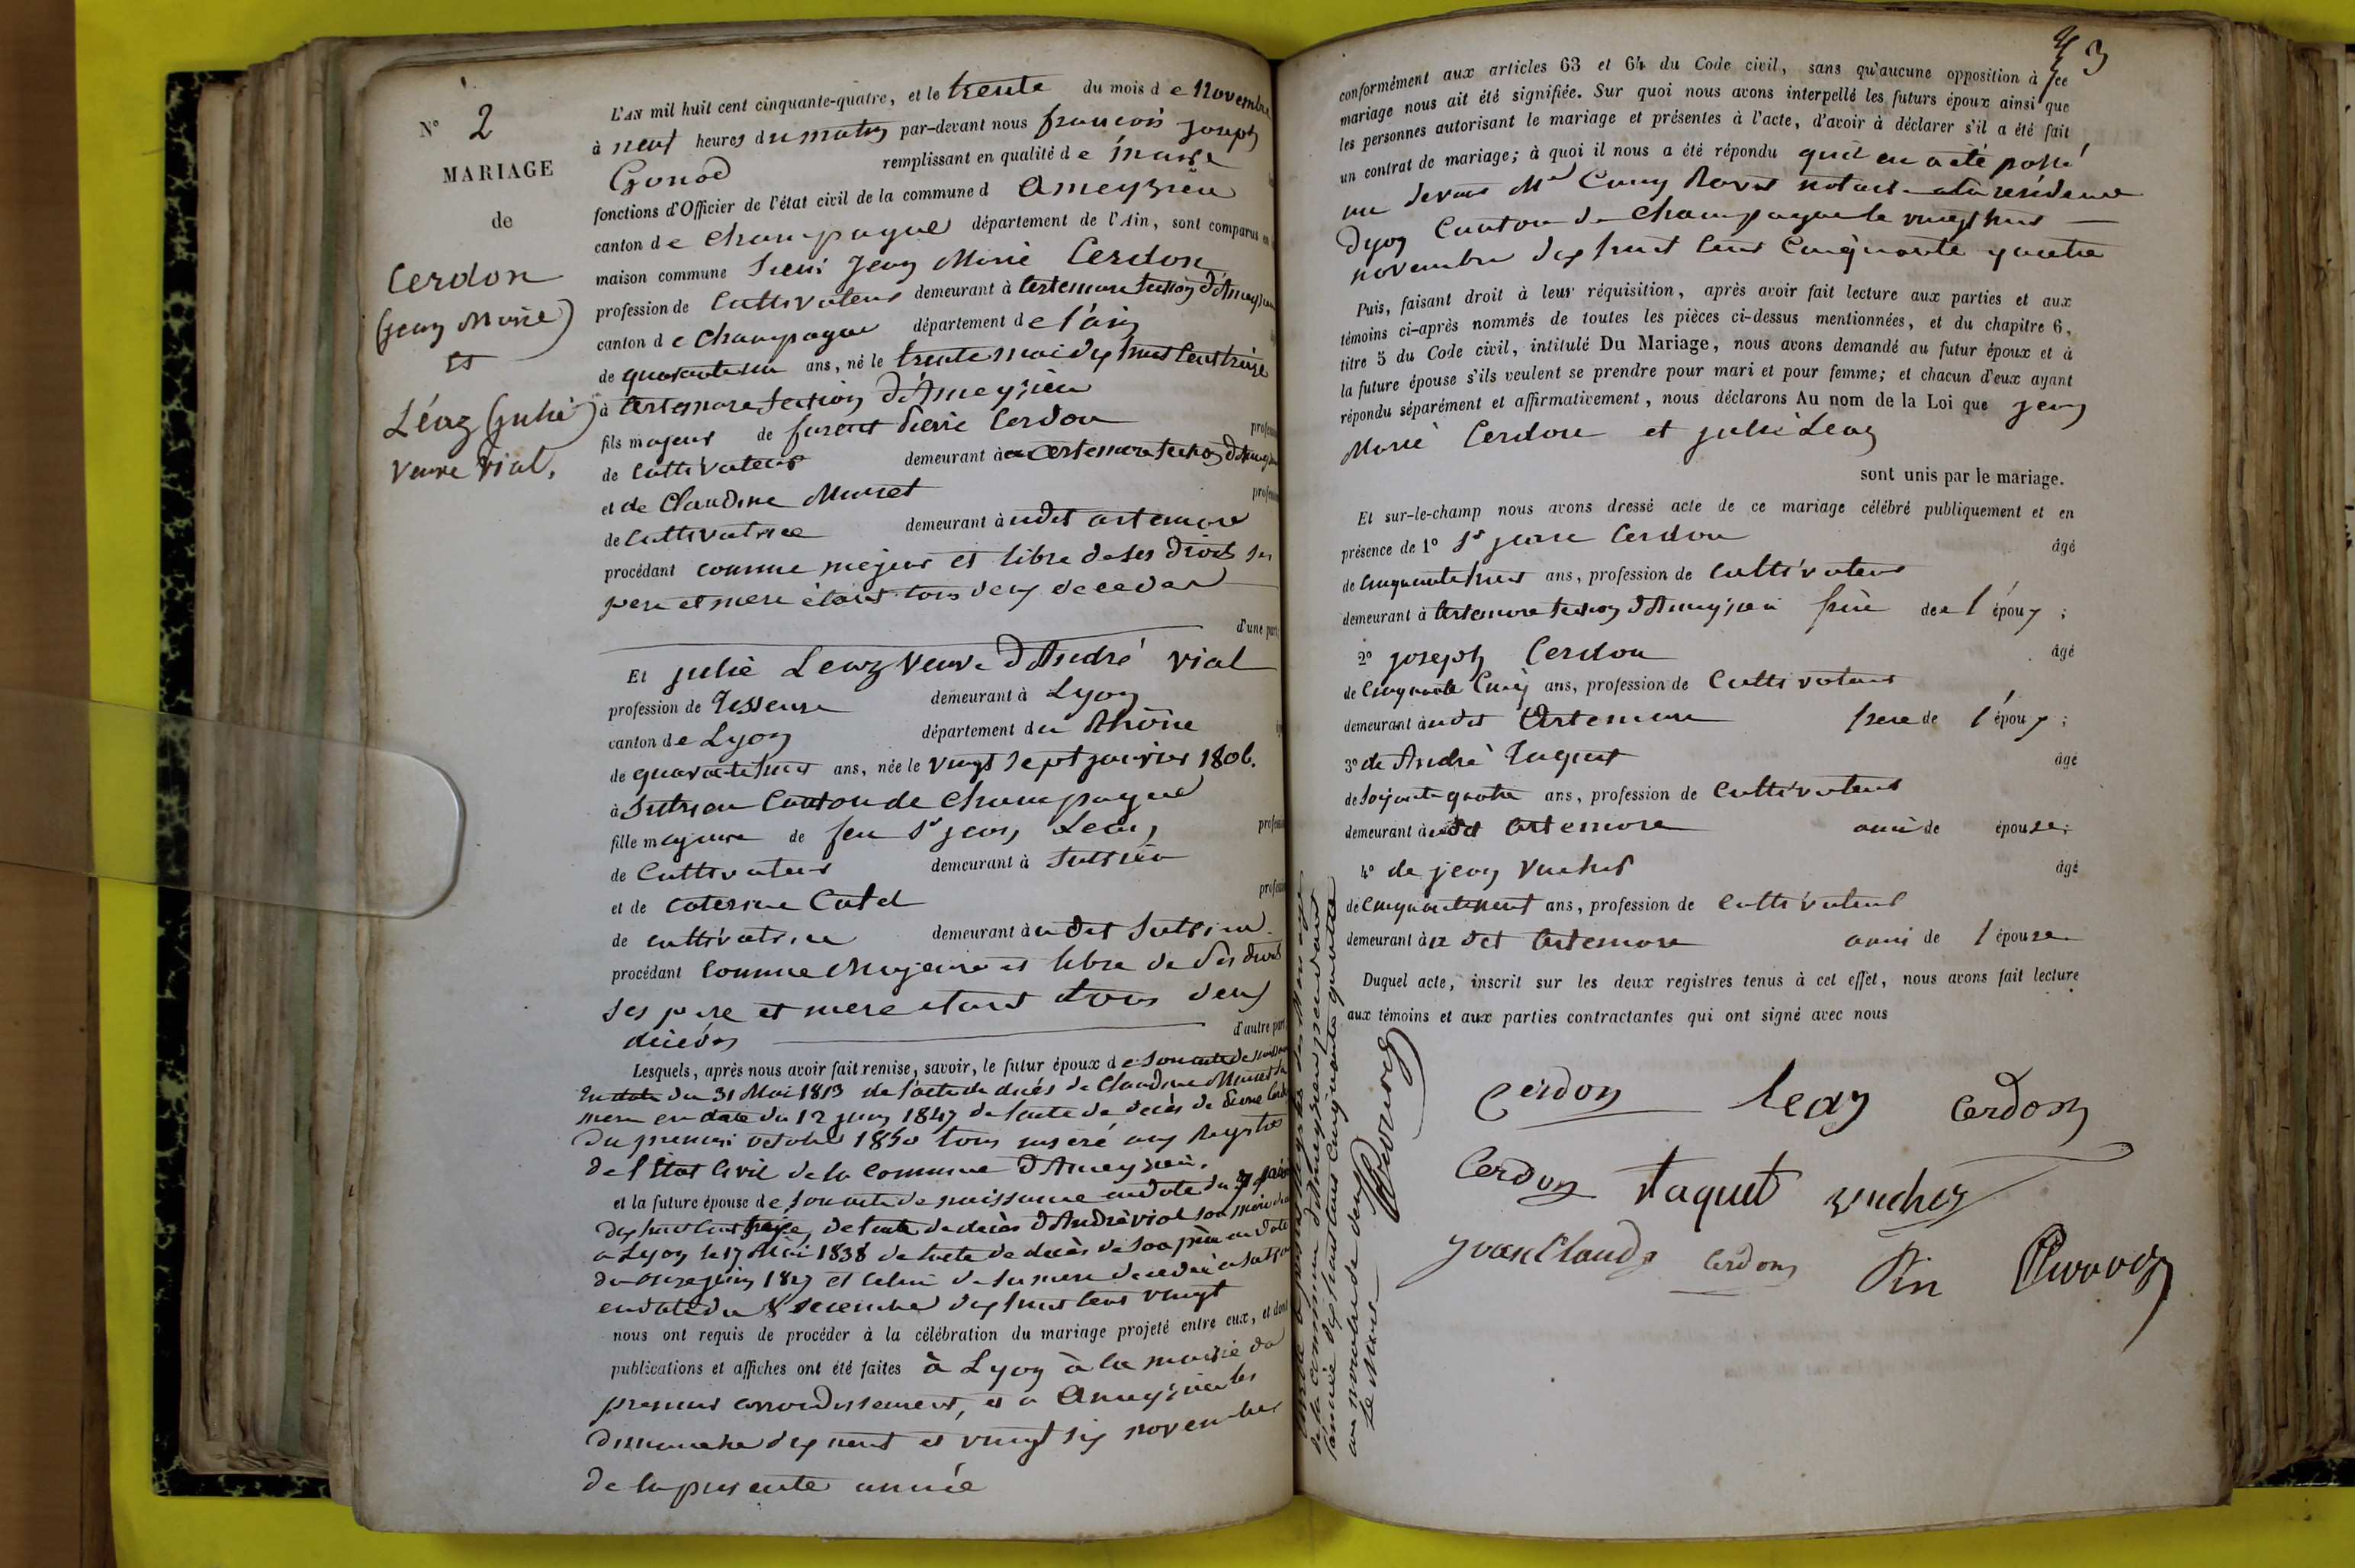 N° 2
MARIAGE
de
Cerdon
(jean Marie)
et
Léaz (julie)
Veuve Vial,
L'AN mil huit cent cinquante-quatre, et le trente du mois de Novembre
à neuf heures du matin par-devant nous françois joseph
Gonod remplissant en qualité de maire
fonctions d'Officier de l'état civil de la commune d Ameyzieu
canton de Champagne département de l'Ain, sont comparus en
maison commune Sieur jean Marie Cerdon
profession de Cultivateur demeurant à Artemare section d'Ameyzieu
canton de Champagne département de l'ain
de quarante un ans, né le trente mai dix huit cent treize
à Artemare section d'Ameyzieu
fils majeur de furent Pierre Cerdon
de Cultivateur demeurant à Artemare section d'Ameyzieu
et de Claudine Munet
de Cultivatrice demeurant à udit artemare
procédant comme majeur et libre de ses droits ses
pere et mere étant tous deux décédés
d'une part;
Et julie Leaz veuve d'André vial
profession de Tisseuse demeurant à Lyon
canton de Lyon département du Rhône
de quarante huit ans, née le vingt sept janvier 1806.
à Sutrieu Canton de Champagne
fille majeure de feu Sr jean Leaz
de Cultivateur demeurant à Sutrieu
et de caterine Catel
de cultivatrice demeurant à udit Sutrieu
procédant comme Majeure et libre de ses droits
ses pere et mere etant tous deux
décédés
d'autre part,
Lesquels, après nous avoir fait remise, savoir, le futur époux de son acte de naissance
En date du 31 Mai 1813 de l'acte de décés de Claudine Munet sa
mere en date du 12 juin 1847 de l'acte de decès de Pierre Cerdon
du premier octobre 1850 tous inseré aux Registres
de l'Etat Civil de la Commune d'Ameyzieu.
et la future épouse de son acte de naissance en date du
dix huit cent de l'acte de decès d'André vial son mari
a Lyon le 17 Mai 1838 de l'acte de decès de son père en date
du onze juin 18 et celui de sa mere decedée a Sutrieu
en date du 8 decembre dix huit cent vingt
nous ont requis de procéder à la célébration du mariage projeté entre eux, et dont
publications et affiches ont été faites à Lyon à la mairie du
premier arrondissement, et a Ameyzieu les
dimanche dix neuf et vingt six novembre
de la presente année
3
conformément aux articles 63 et 64 du Code civil, sans qu'aucune opposition à ce
mariage nous ait été signifiée. Sur quoi nous avons interpellé les futurs époux ainsi que
les personnes autorisant le mariage et présentes à l'acte, d'avoir à déclarer s'il a été fait
un contrat de mariage; à quoi il nous a été répondu qu'il en a été passé
un devant Me Cuny notaire a la résidence
Canton de Champagne le vingt huit
novembre dix huit cent Cinquante quatre
Puis, faisant droit à leur réquisition, après avoir fait lecture aux parties et aux
témoins ci-après nommés de toutes les pièces ci-dessus mentionnées, et du chapitre 6,
titre 5 du Code civil, intitulé Du Mariage, nous avons demandé au futur époux et à
la future épouse s'ils veulent se prendre pour mari et pour femme; et chacun d'eux ayant
répondu séparément et affirmativement, nous déclarons Au nom de la Loi que jean
Marie Cerdon et julie Leaz
sont unis par le mariage.
Et sur-le-champ nous avons dressé acte de ce mariage célébré publiquement et en
présence de 1° Sr Cerdon âgé
de Cinquante huit ans, profession de Cultivateur
demeurant à Artemare section d'Ameyzieu frère de l'époux;
2° joseph Cerdon âgé
de Cinquante Cinq ans, profession de Cultivateur
demeurant à udit Artemare frere de l'époux;
3° de André Taquet âgé
de Soixante quatre ans, profession de Cultivateur
demeurant à udit Artemare ami de épouse;
4° de jean Vuchet âgé
de Cinquante neuf ans, profession de Cultivateur
demeurant à u dit Artemare ami de l'épouse
Duquel acte, inscrit sur les deux registres tenus à cet effet, nous avons fait lecture
aux témoins et aux parties contractantes qui ont signé avec nous
Cerdon Leaz Cerdon
Cerdon Taquet
Cerdon Pin
de la commune d'Ameyzieu pendant
l'année dix huit cent Cinquante quatre
au nombre de deux
Le Maire